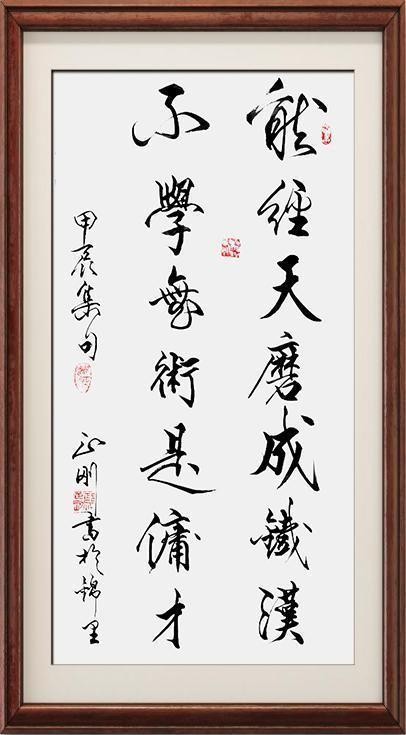 能经天磨成鐵漢
不學無術是傭才
甲辰集句
正刚書於錦里